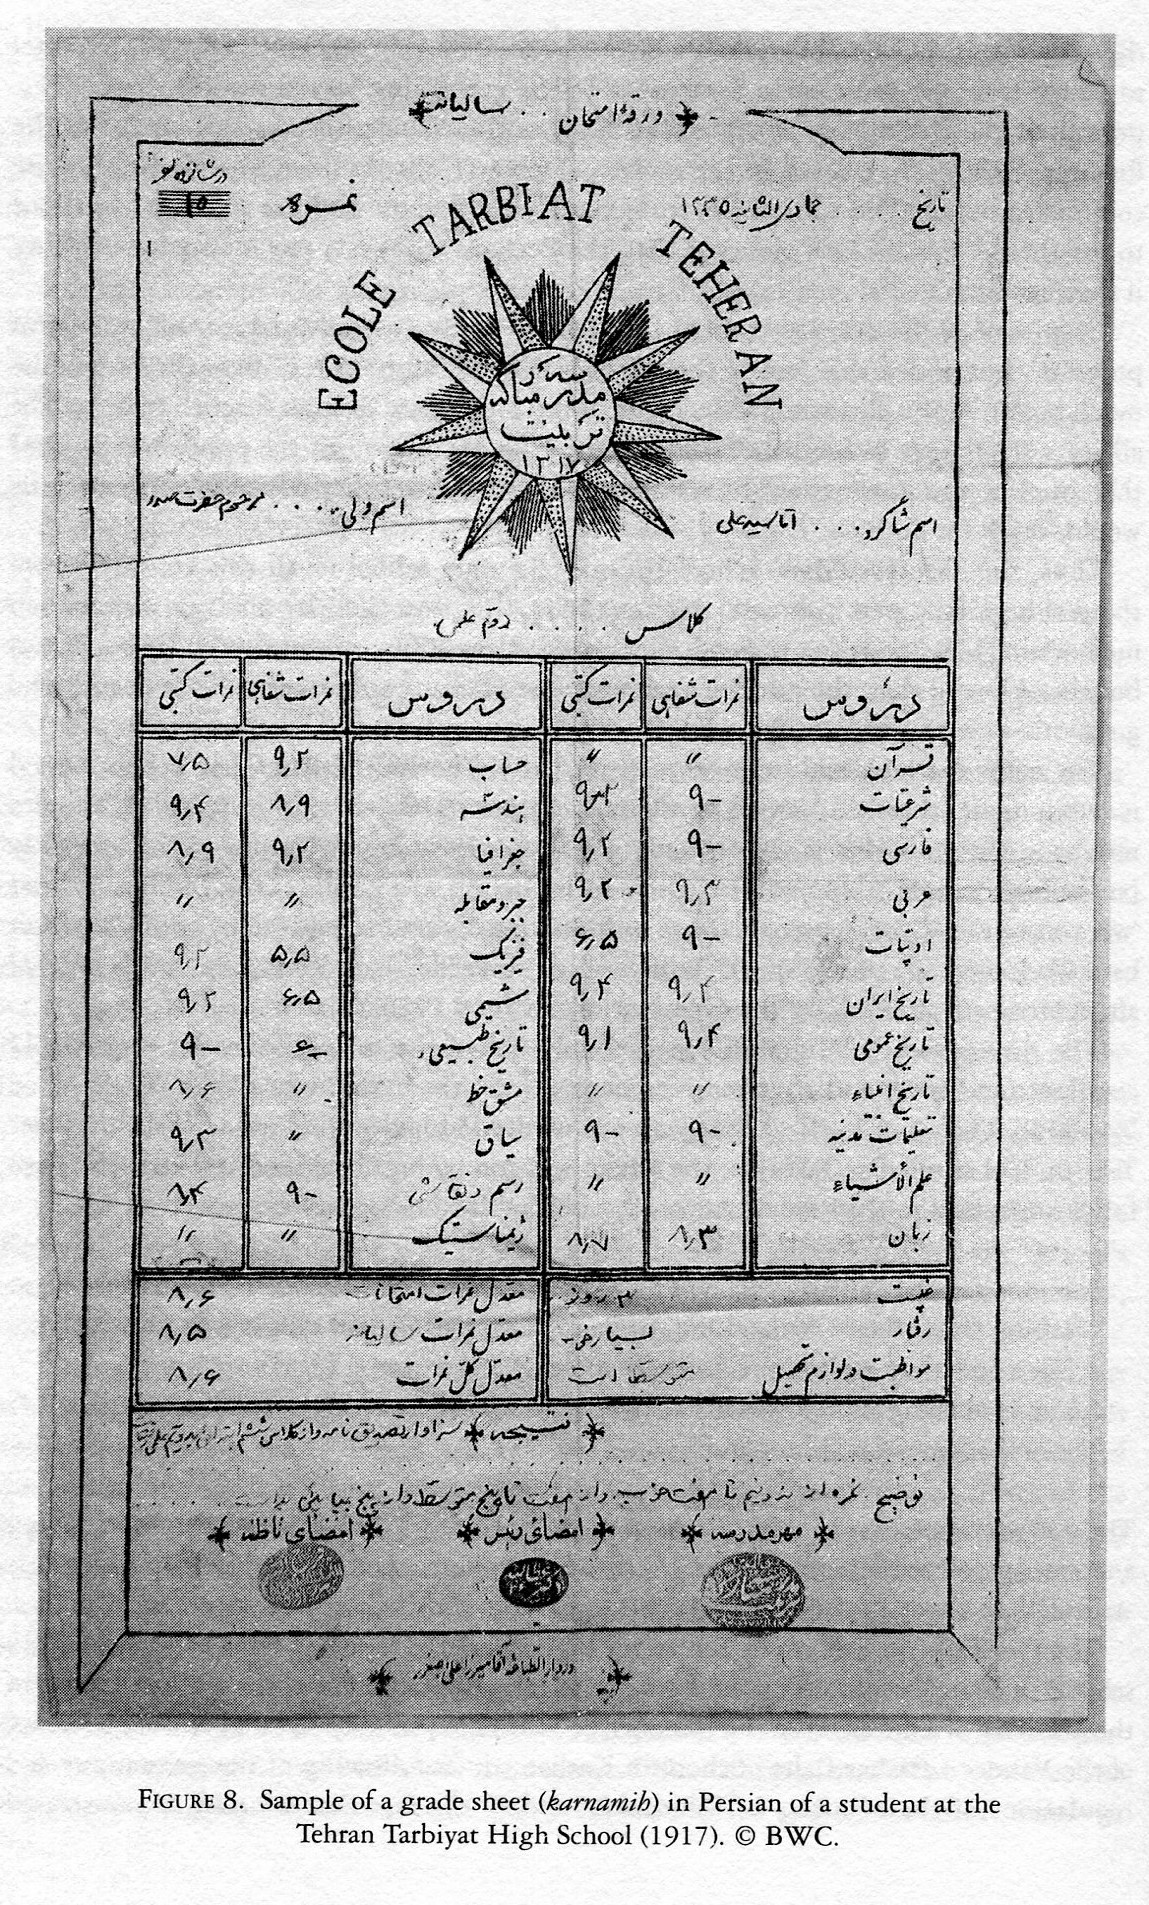 ورقهٔ امتحان . . سالیانه
تاریخ . . . . . جمادی الثانیه ۱۳۳۵
نمره
۱۵
ECOLE TARBIAT TEHERAN
مدرسه مبارکه
تربیت
۱۳۱۷
اسم شاگرد . . . آقا سید علی
اسم ولی . . . . مرحوم حضرت صدر
کلاس . . . . . دوم علمی
دروس نمرات شفاهی نمرات کتبی دروس نمرات شفاهی نمرات کتبی
قرآن " " حساب ۹٫۲ ۷٫۵
شرعیات ۹- ۹٫۳ هندسه ۸٫۹ ۹٫۴
فارسی ۹- ۹٫۲ جغرافیا ۹٫۲ ۸٫۹
عربی ۹٫۳ ۹٫۲ جبر و مقابله " "
ادبیات ۹- ۶٫۵ فیزیک ۵٫۵ ۹٫۲
تاریخ ایران ۹٫۴ ۹٫۴ شیمی ۶٫۵ ۹٫۲
تاریخ عمومی ۹٫۴ ۹٫۱ تاریخ طبیعی ۶- ۹-
تاریخ انبیاء " " مشق خط " ۸٫۶
تعلیمات مدنیه ۹- ۹- سیاق " ۹٫۳
علم الأشیاء " " رسم و نقاشی ۹- ۸٫۴
زبان ۸٫۳ ۸٫۷ ژیمناستیک " "
غیبت ۳ روز معدل نمرات امتحانات ۸٫۶
رفتار بسیار خوب معدل نمرات سالیانه ۸٫۵
مواظبت و لوازم تحصیل متوسط است معدل کل نمرات ۸٫۶
نتیجه سزاوار تصدیق نامه و از کلاس ششم ابتدائی
توضیح نمره از ده و نیم تا هفت خوب و از هفت تا پنج متوسط و از پنج به پائین بد است
مهر مدرسه امضای رئیس امضای ناظم
در دار الطباعه آقا میرزا علی اصغر
FIGURE 8. Sample of a grade sheet (karnamih) in Persian of a student at the
Tehran Tarbiyat High School (1917). © BWC.